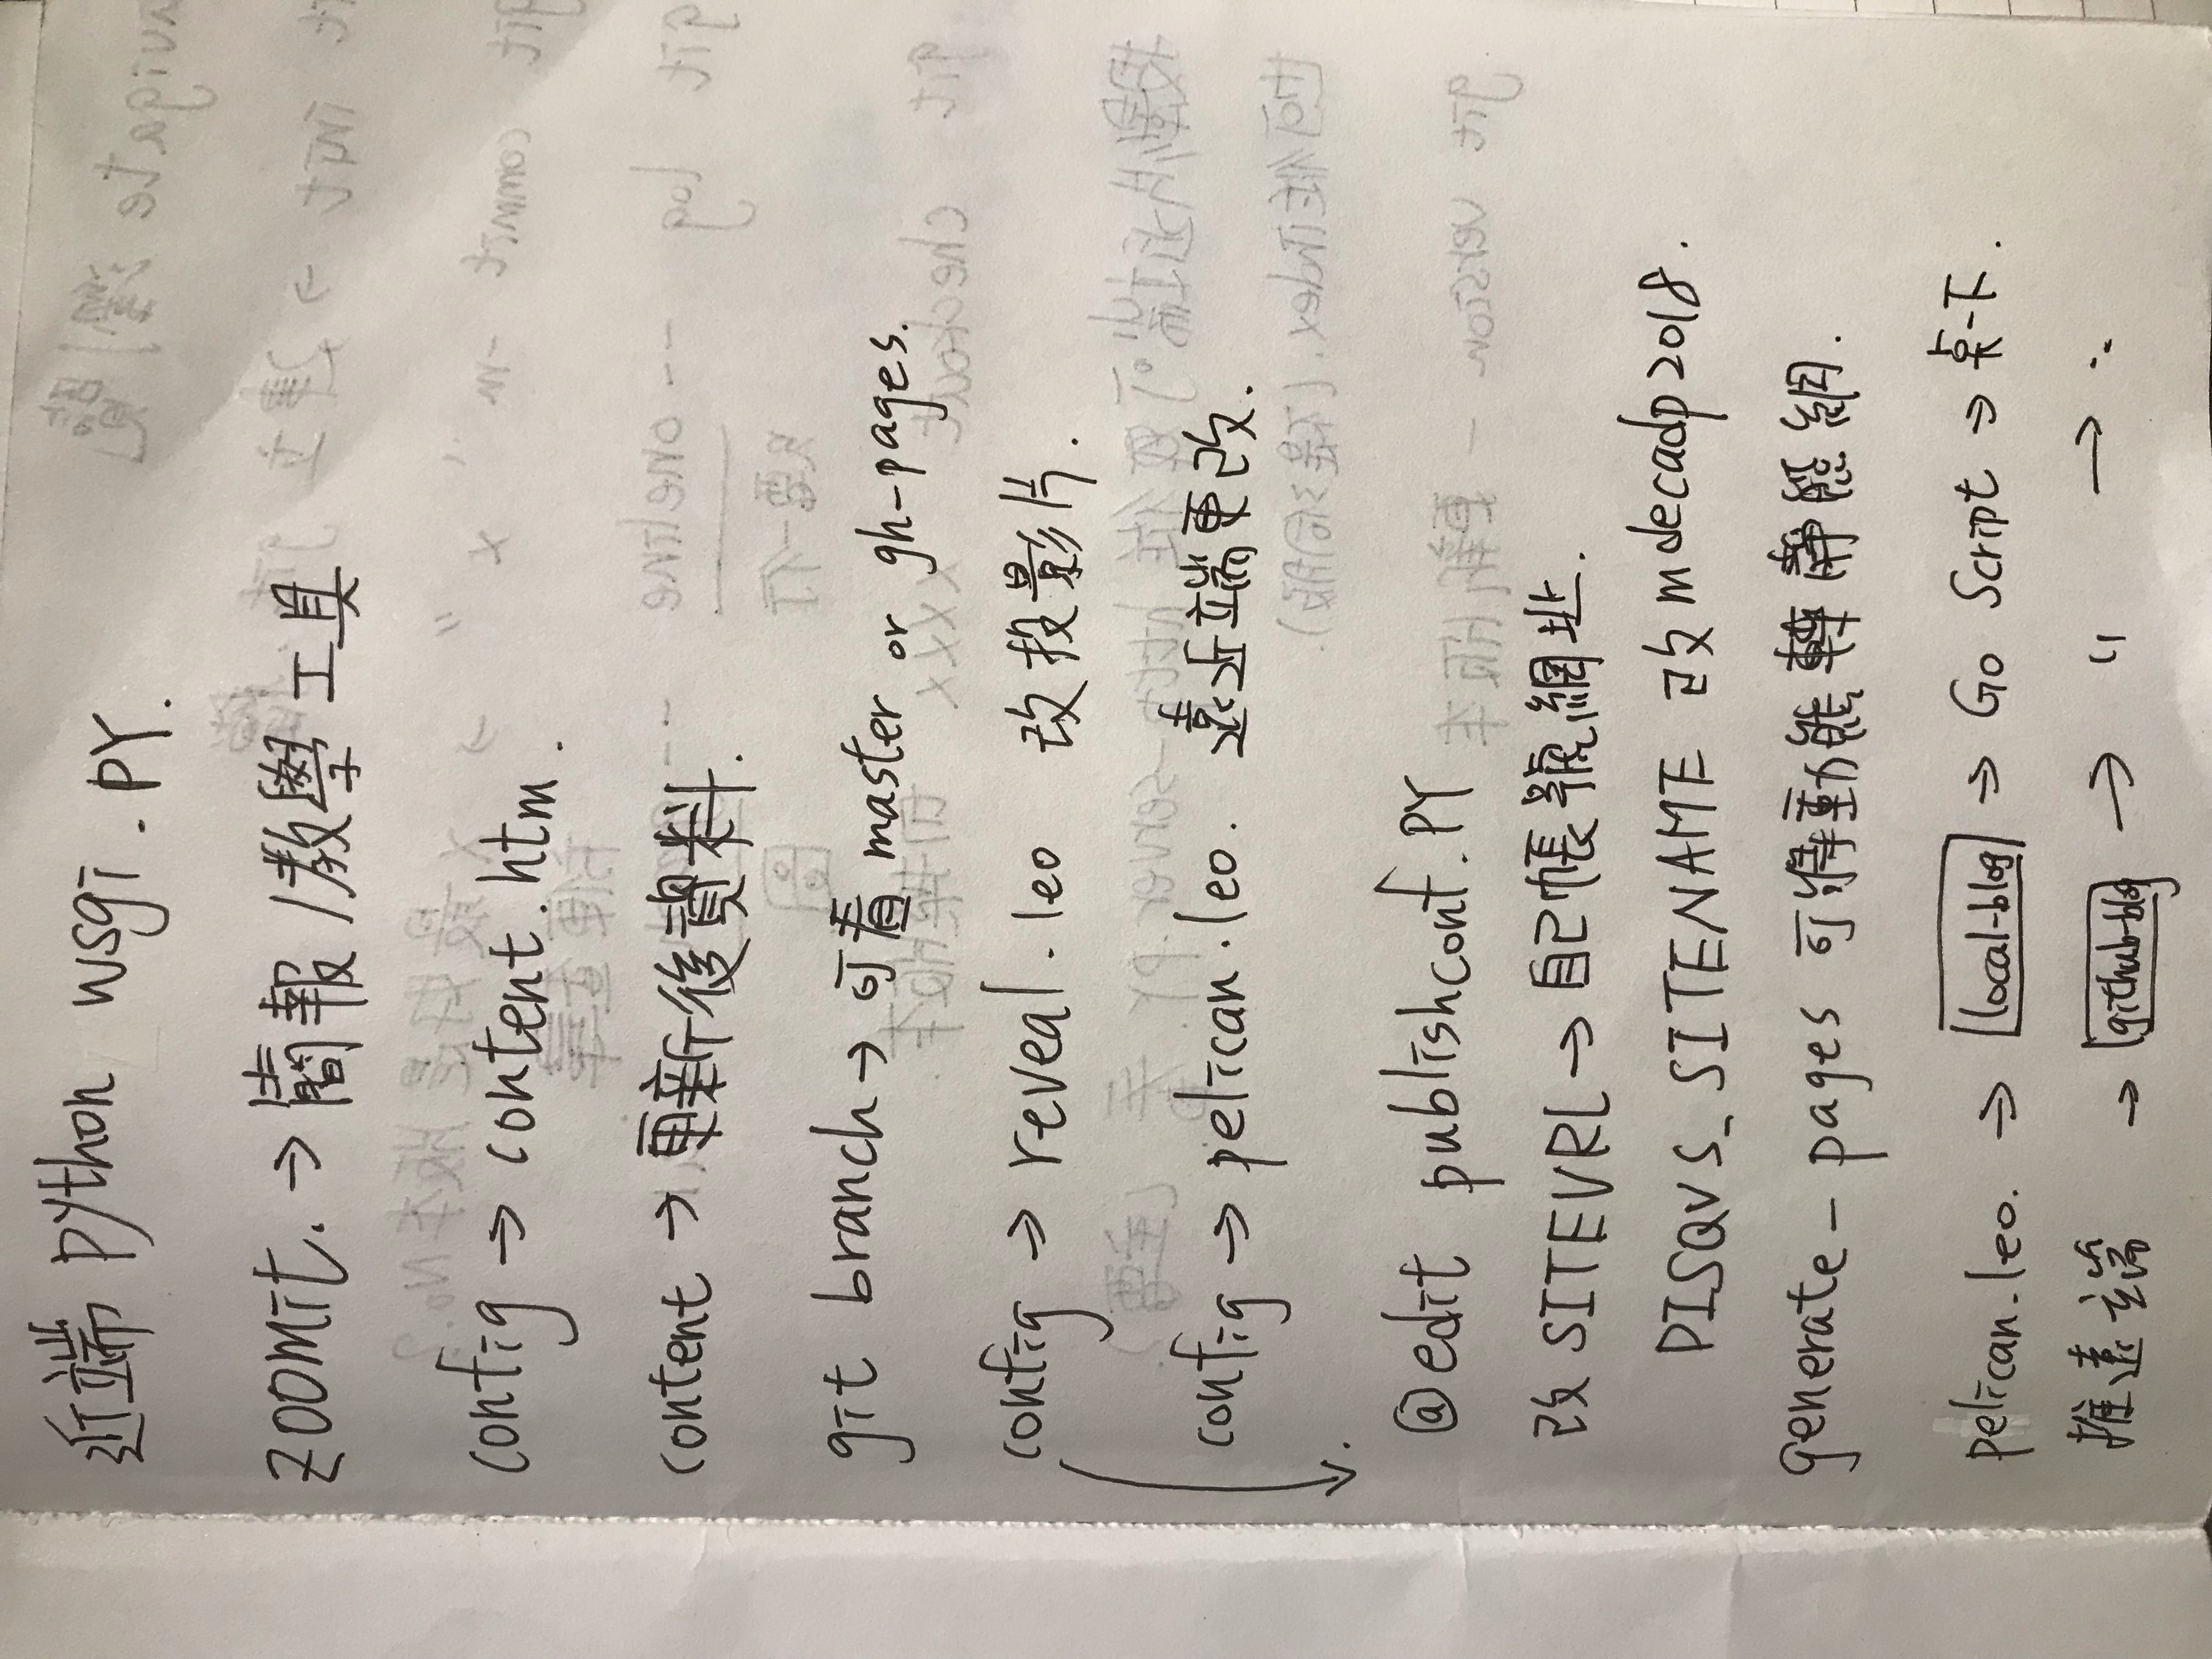 近端 python wsgi.PY.
zoomit. → 簡報/教學工具
config → content.htm.
content → 更新後資料.
git branch → 可看 master or gh-pages.
config → reveal.leo 改投影片.
config → pelican.leo. 遠近端更改.
@edit publishconf.PY
改 SITEURL → 自己帳號網址.
DISQUS_SITENAME 改 mdecadp2018.
generate_pages 可將動態轉靜態網.
pelican.leo. → local-blog → Go Script → 点一下.
推遠端 → github-blog → 〃 → :.